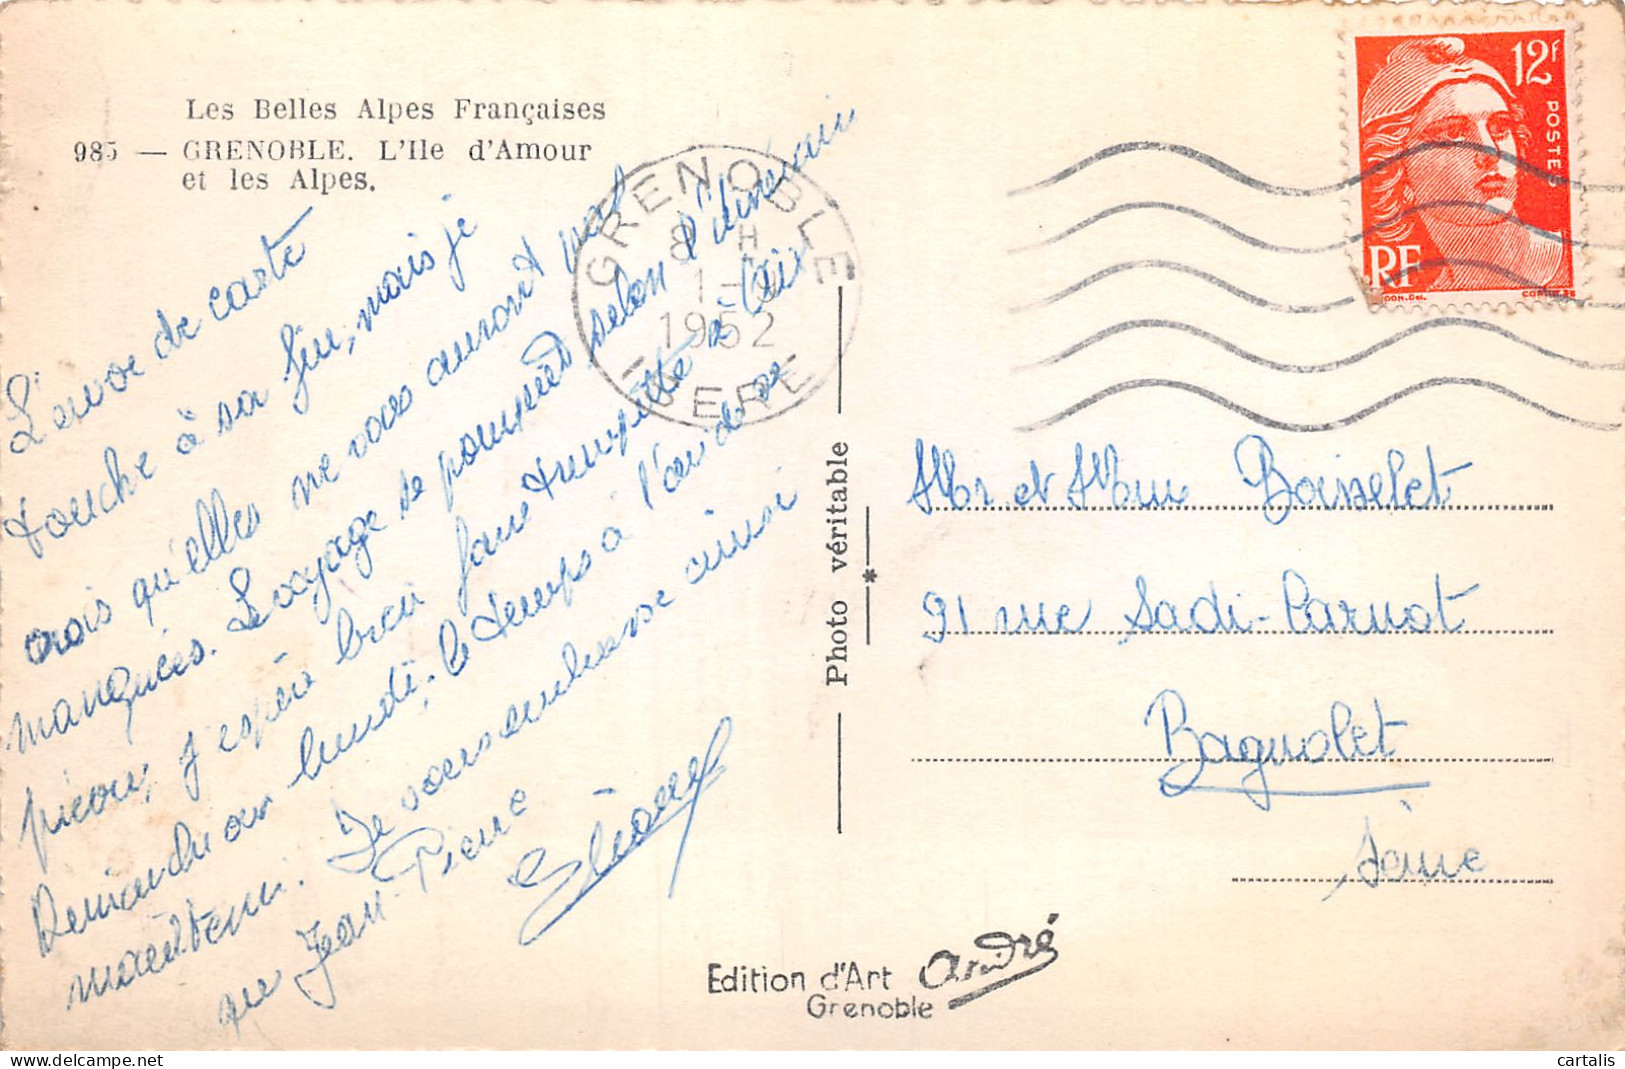 Les Belles Alpes Françaises
985 — GRENOBLE. L'Ile d'Amour
et les Alpes.
L'envoi de carte
touche à sa fin, mais je
crois qu'elles ne vous auront pas
manquées. Le voyage de pompiers selon l'itinéraire
prévu, j'espère bien faire trempette à Aix
Dimanche ou lundi, le temps à l'air de se
maintenir. Je vous embrasse ainsi
que Jean-Pierre
GRENOBLE
8 H
1 -
1952
ISERE
12F
POSTES
RF
Photo véritable
*
Mr et Mme Boisselet
91 rue Sadi-Carnot
Bagnolet
Seine
Edition d'Art André
Grenoble
cartalis